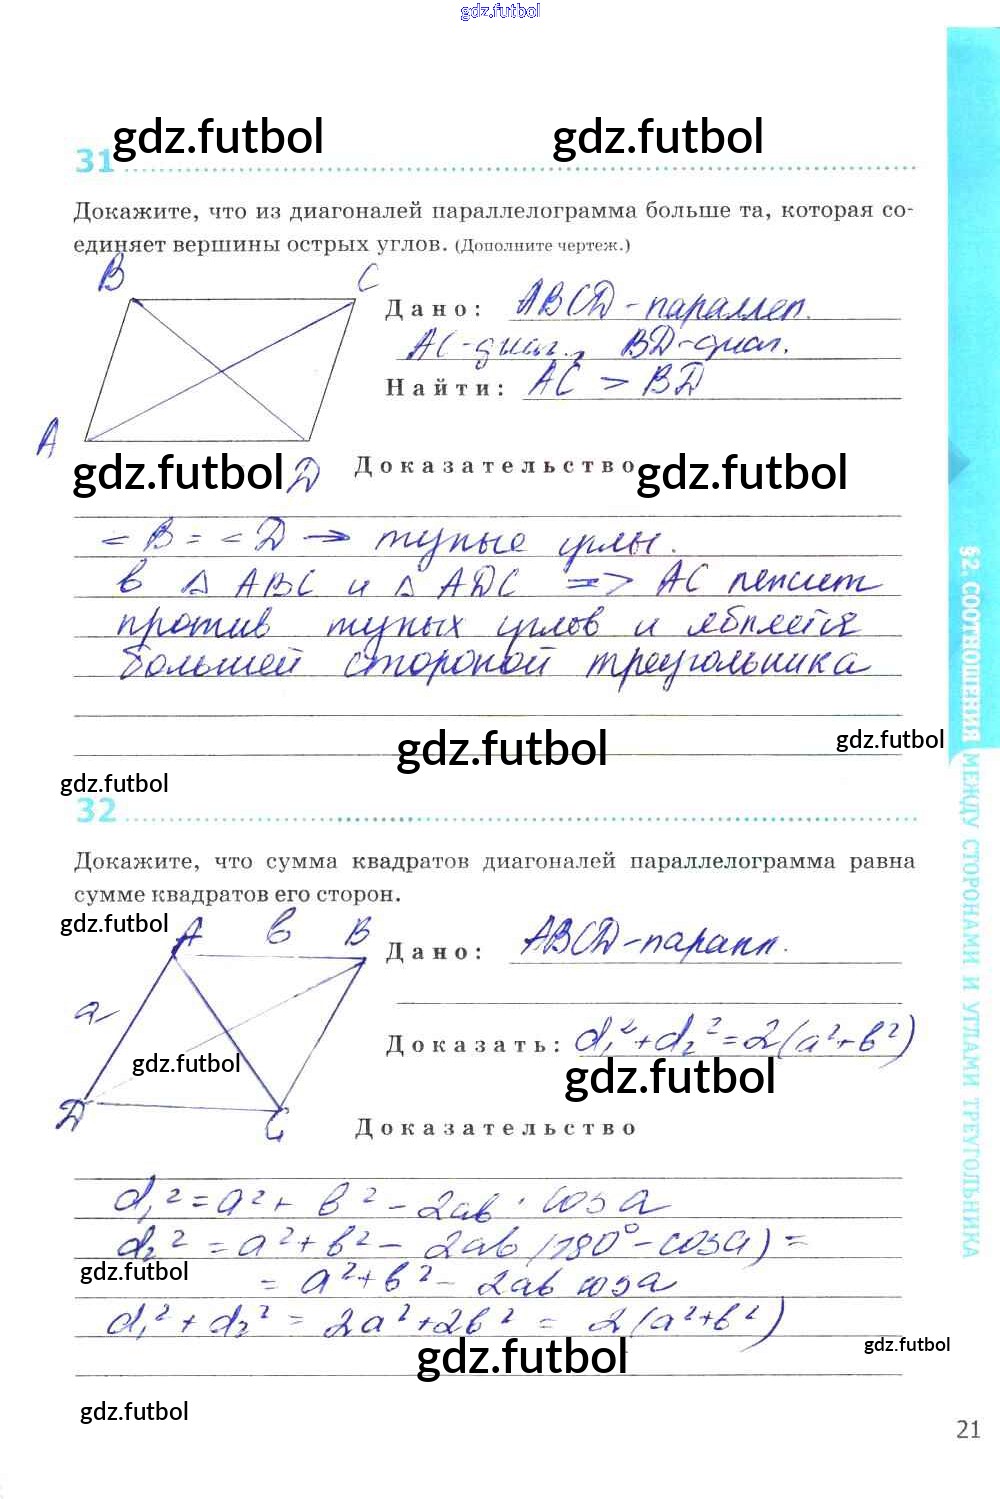 gdz.futbol
gdz.futbol gdz.futbol
31
Докажите, что из диагоналей параллелограмма больше та, которая со-
единяет вершины острых углов. (Дополните чертеж.)
B C
Дано: ABCD-параллел.
AC-диаг., BD-диаг.
Найти: AC > BD
A
gdz.futbol D Доказательство gdz.futbol
∠B = ∠D → тупые углы.
в △ ABC и △ ADC => AC лежит
против тупых углов и является
большей стороной треугольника
gdz.futbol gdz.futbol
gdz.futbol
32
Докажите, что сумма квадратов диагоналей параллелограмма равна
сумме квадратов его сторон.
gdz.futbol
A в B
Дано: ABCD-паралл.
a
Доказать: d₁²+d₂²=2(a²+в²)
gdz.futbol gdz.futbol
D C
Доказательство
d₁²=a²+ в²-2aв·cosa
d₂²=a²+в²- 2aв(180°-cosa)=
gdz.futbol = a²+в²- 2aв cosa
d₁²+d₂² = 2a²+2в² = 2(a²+в²)
gdz.futbol gdz.futbol
gdz.futbol
21
§2. СООТНОШЕНИЯ МЕЖДУ СТОРОНАМИ И УГЛАМИ ТРЕУГОЛЬНИКА